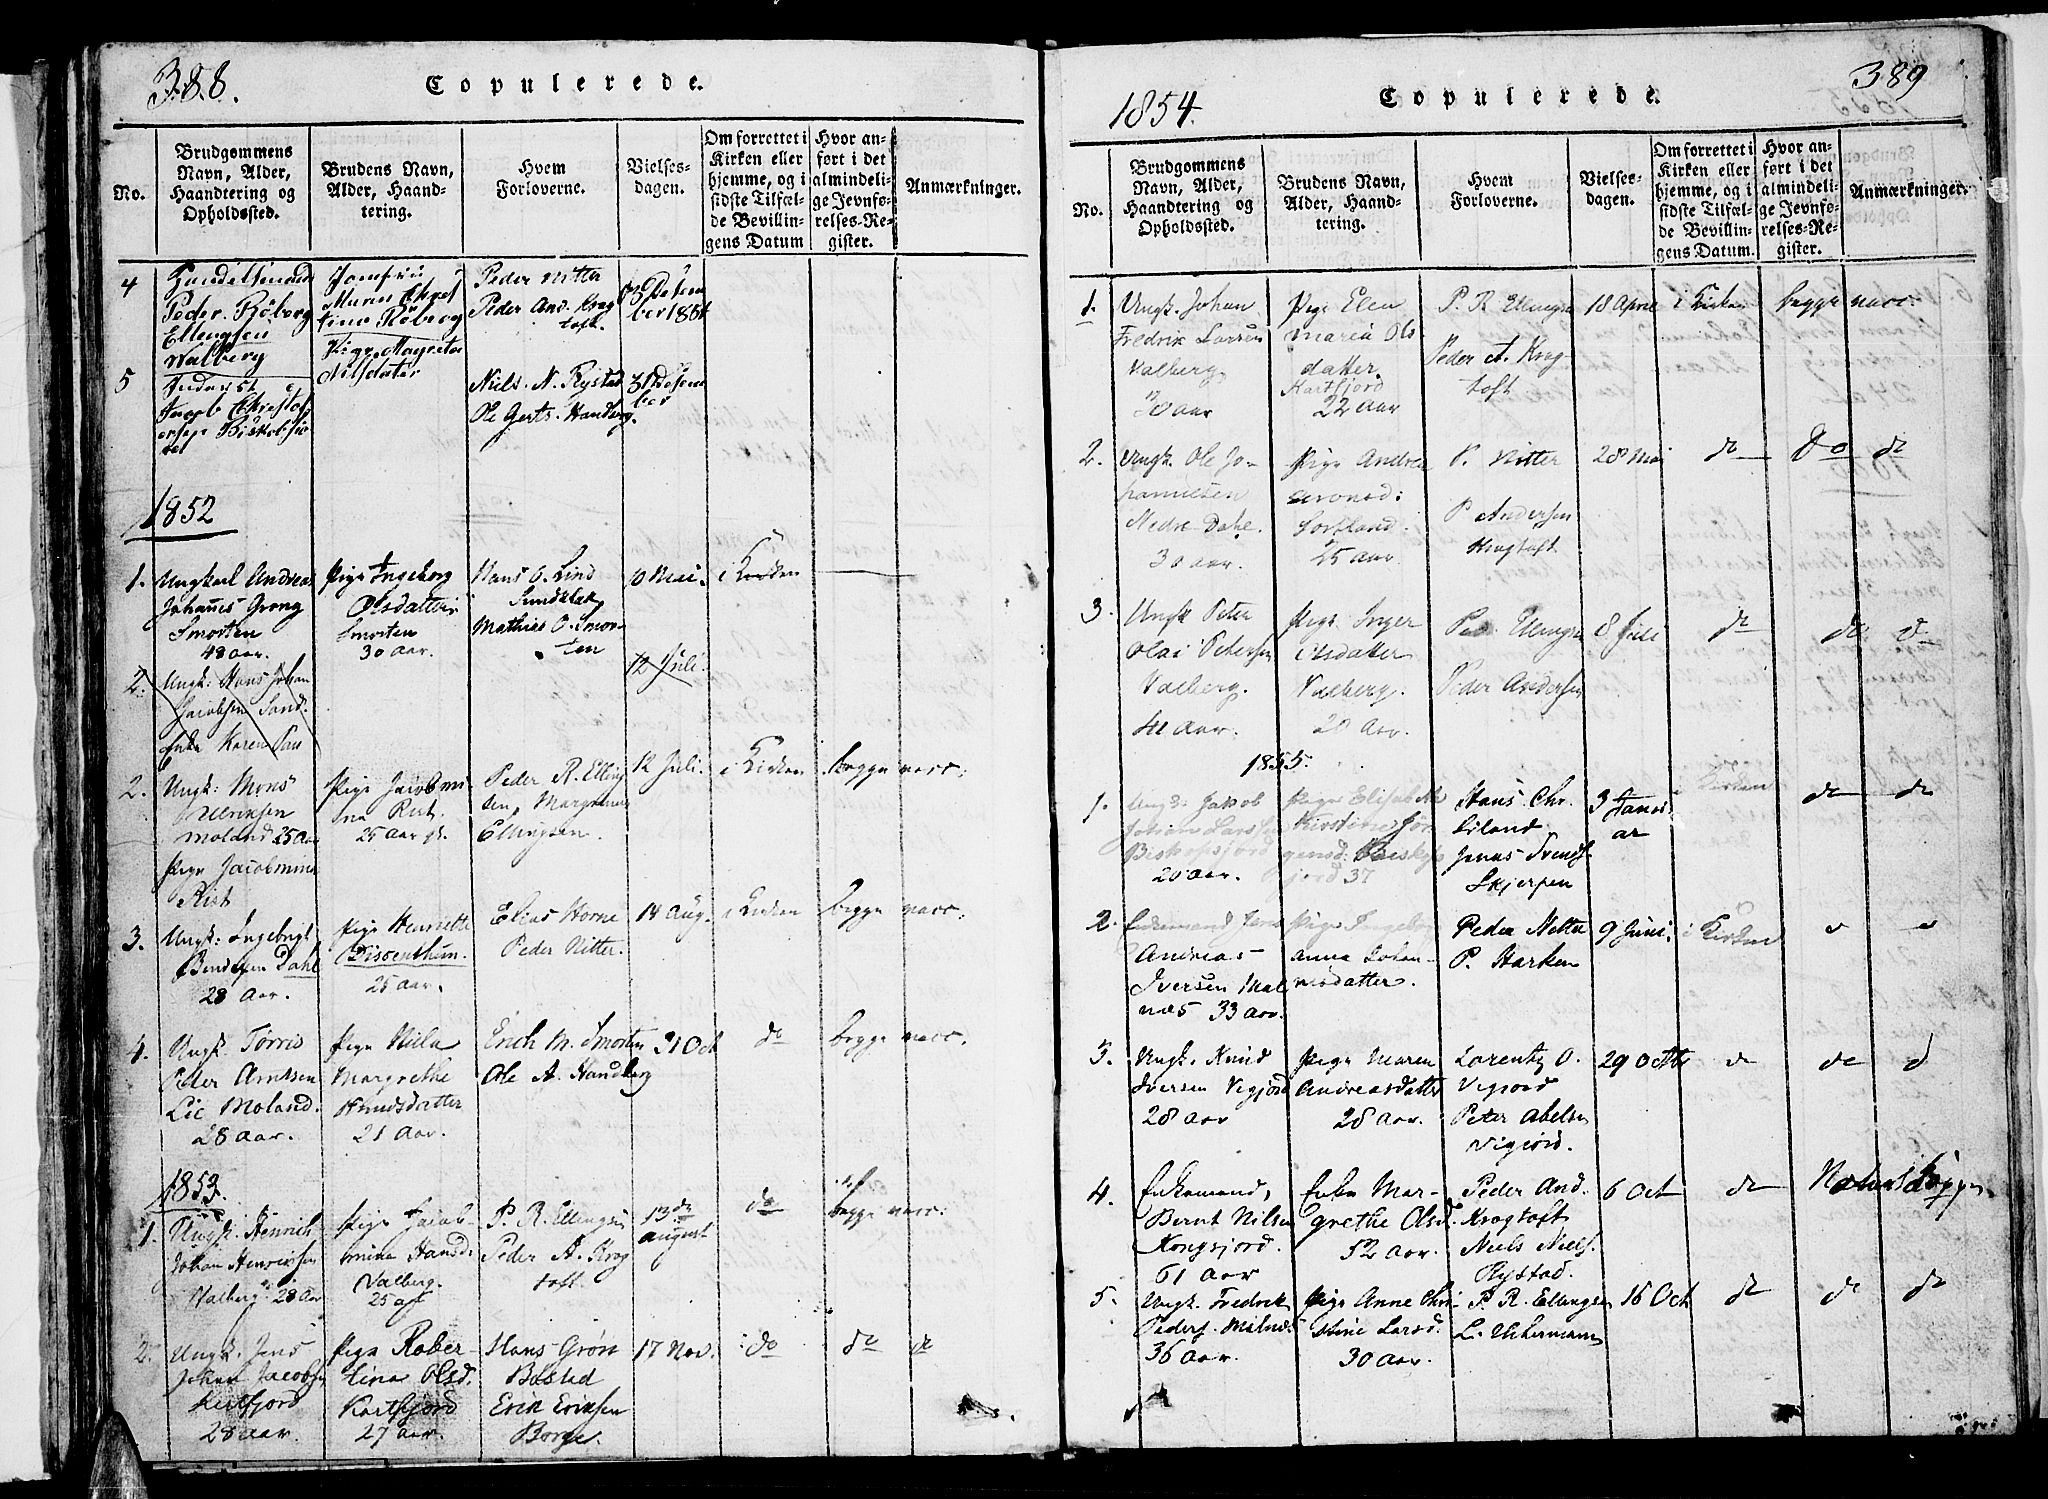 388.
Copulerede.
No.
Brudgommens Navn, Alder, Haandtering og Opholdssted.
Brudens Navn, Alder, Haandtering.
Hvem Forloverne.
Vielses-dagen.
Om forrettet i Kirken eller hjemme, og i sidste Tilfælde Bevillingens Datum
Hvor anført i det almindelige Jevnførelses-Register.
Anmærkninger.
4
Peder Röberg
Ellengsen
Walberg
Jomfru
Maren Chris
tine Röberg
Peder Nitter
Peder And. Krog
toft.
5
Jacob Christof
Pige Magreta
Nilsdater
Niels. N. Rystad
Ole Gerts. Handberg.
31 Desem
ber
1852
1.
Ungkarl Andreas
Johannes Grong
Smorten
48 aar.
Pige Ingeborg
Olsdatter
Smorten
30 Aar.
Hans O. Lind
Sundklak
Mathias O. Smor-
ten
10 Mai.
i Kirken
2.
Ungk: Hans Johan
Jacobsen Sand.
Enke Karen Pau
12 Juli.
2.
Ungk: Mons
Ulriksen
Moland 25 Aar
Pige Jacobmine
Rist
Pige Jacobmi
na Rist.
25 Aar gl.
Peder R. Elling
sen,
Ellingsen.
12 Juli.
i Kirken
begge vacc.
3.
Ungk: Ingebrigt
Bendixen Dahl
28 Aar.
Pige Henriette
Dissenthun.
25 aar.
Elias Horne
Peder Nitter.
14 Aug.
i Kirken
begge vacc.
4.
Ungk. Törris
Peter Arntsen
Lie Moland.
28 Aar.
Pige Nicla
Margrethe
Knudsdatter
21 Aar.
Erich M. Smorten
Ole A. Handberg
31 Oct
do
begge vacc.
1853.
1.
Ungk. Henrich
Johan Henriksen
Valberg 28 Aar
Pige Jacob-
mina Hansd.
Valberg.
25 a
P. R. Ellingsen
Peder A. Krog
toft.
13de
august
do
begge vacc.
2.
Ungk. Jens
Johan Jacobsen
Kartfjord
28 aar.
Pige Rober-
tina Olsd.
Kartfjord
27 aar.
Hans Grön
Bosted
Erik Eriksen
Borge.
17 Nov.
do
do
do
389
1854.
Copulerede.
No.
Brudgommens Navn, Alder, Haandtering og Opholdssted.
Brudens Navn, Alder, Haandtering.
Hvem Forloverne.
Vielses-dagen.
Om forrettet i Kirken eller hjemme, og i sidste Tilfælde Bevillingens Datum.
Hvor anført i det almindelige Jevnførelses-Register.
Anmærkninger.
1.
Ungk. Johan
Fredrik Larsen
Valberg
Aar
Pige Elen
Maria Ols
datter
Kartfjord
22 Aar
P. R Ellingsen
Peder A. Krog-
toft
18 April
i Kirken
begge vacc.
2.
Ungk. Ole Jo-
hannesen
Nedre Dahl.
30 aar.
Pige Andrea
Aronsd:
Sortland.
25 aar
P. Nitter
P Andersen
Krogtoft
28 Mai
do
do
do
3.
Ungk Peter
Olai Petersen
Valberg.
41 Aar.
Pige Inger
Olsdatter
Valberg.
20 Aar.
Ped. Ellingsen
Peder Andersen
8 Juli
do
do
do
1855.
1.
Ungk: Jakob
Johan Larssen
Biskopsjord
20 Aar.
Pige Elisabeth
Kirstine Jör
gensd:
jord 37
Hans Chr.
Eiland
Jonas Svends.
Skjerpen
3 Janu-
ar
i Kirken
do
do
2.
Enkemand Jens
Andreas
Iversen Mal
næs 33 aar.
Pige Ingeborg
Anna Johan-
nisdatter.
Peder Netter
P. Harken
9 Juni.
i Kirken
3.
Ungk. Knud
Iversen Vigjord
28 Aar
Pige Maren
Andreasdatter
28 Aar.
Lorentz O.
Vigjord
Peter Abelsen
Vigjord.
29 Octbr
do
do
d
4.
Enkemand,
Bernt Nilsen
Kongsjord.
61 Aar
Enke Mar-
grethe Olsd.
52 Aar.
Peder And.
Krogtoft
Niels Niels.
Rystad.
6 Oct
do
Naturl Kopper
5.
Ungk. Fredrik
Peders. Malnæs
36 Aar.
Pige Anne Chri-
stine Larsd.
30 Aar.
P. R. Ellingsen
L. Ukermann
16 Oct
do
do
do